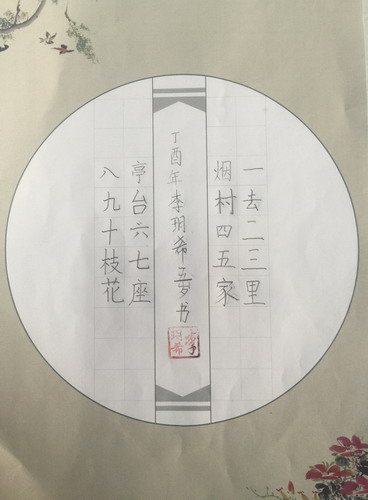 一去二三里
烟村四五家
丁酉年李玥希五岁书
亭台六七座
八九十枝花